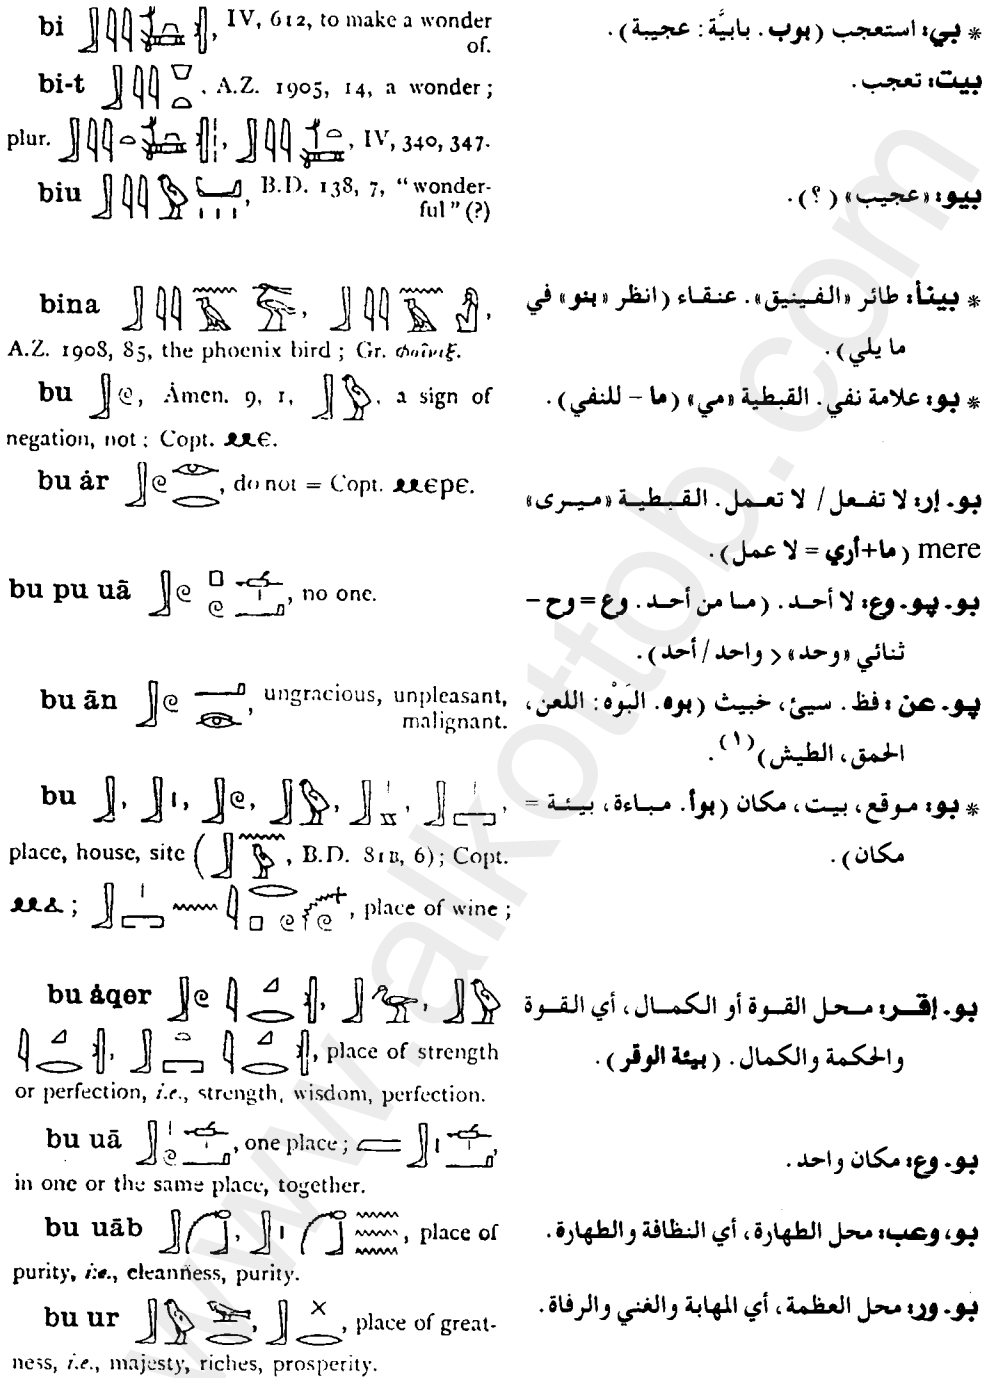 bi IV, 612, to make a wonder of.
bi-t . A.Z. 1905, 14, a wonder ;
plur. , , IV, 340, 347.
biu , B.D. 138, 7, “wonder-
ful” (?)
bina , ,
A.Z. 1908, 85, the phoenix bird ; Gr. φοῖνιξ.
bu , Åmen. 9, 1, , a sign of
negation, not ; Copt. ⲙⲉ.
bu år , do not = Copt. ⲙⲉⲣⲉ.
bu pu uā , no one.
bu ān , ungracious, unpleasant,
malignant.
bu , , , , , ,
place, house, site ( , B.D. 81B, 6) ; Copt.
ⲙⲁ ; , place of wine ;
bu åqer , ,
, , place of strength
or perfection, i.e., strength, wisdom, perfection.
bu uā , one place ; ,
in one or the same place, together.
bu uāb , , place of
purity, i.e., cleanness, purity.
bu ur , , place of great-
ness, i.e., majesty, riches, prosperity.
* بي: استعجب (بوب. بابيَّة: عجيبة).
بيت: تعجب.
بيو: «عجيب» (؟).
* بينأ: طائر «الفينيق». عنقاء (انظر «بنو» في
ما يلي).
* بو: علامة نفي. القبطية «مي» (ما – للنفي).
بو. إر: لا تفعل / لا تعمل. القبطية «ميرى»
mere (ما+أري = لا عمل).
بو. پو. وع: لا أحد. (ما من أحد. وع = وح –
ثنائي «وحد» > واحد / أحد).
پو. عن: فظ. سيئ، خبيث (بوه. البَوْه: اللعن،
الحمق، الطيش)(١).
* بو: موقع، بيت، مكان (بوأ. مباءة، بيئة =
مكان).
بو. إقر: محل القوة أو الكمال، أي القوة
والحكمة والكمال. (بيئة الوقر).
بو. وع: مكان واحد.
بو، وعب: محل الطهارة، أي النظافة والطهارة.
بو. ور: محل العظمة، أي المهابة والغني والرفاة.
www.alkottob.com